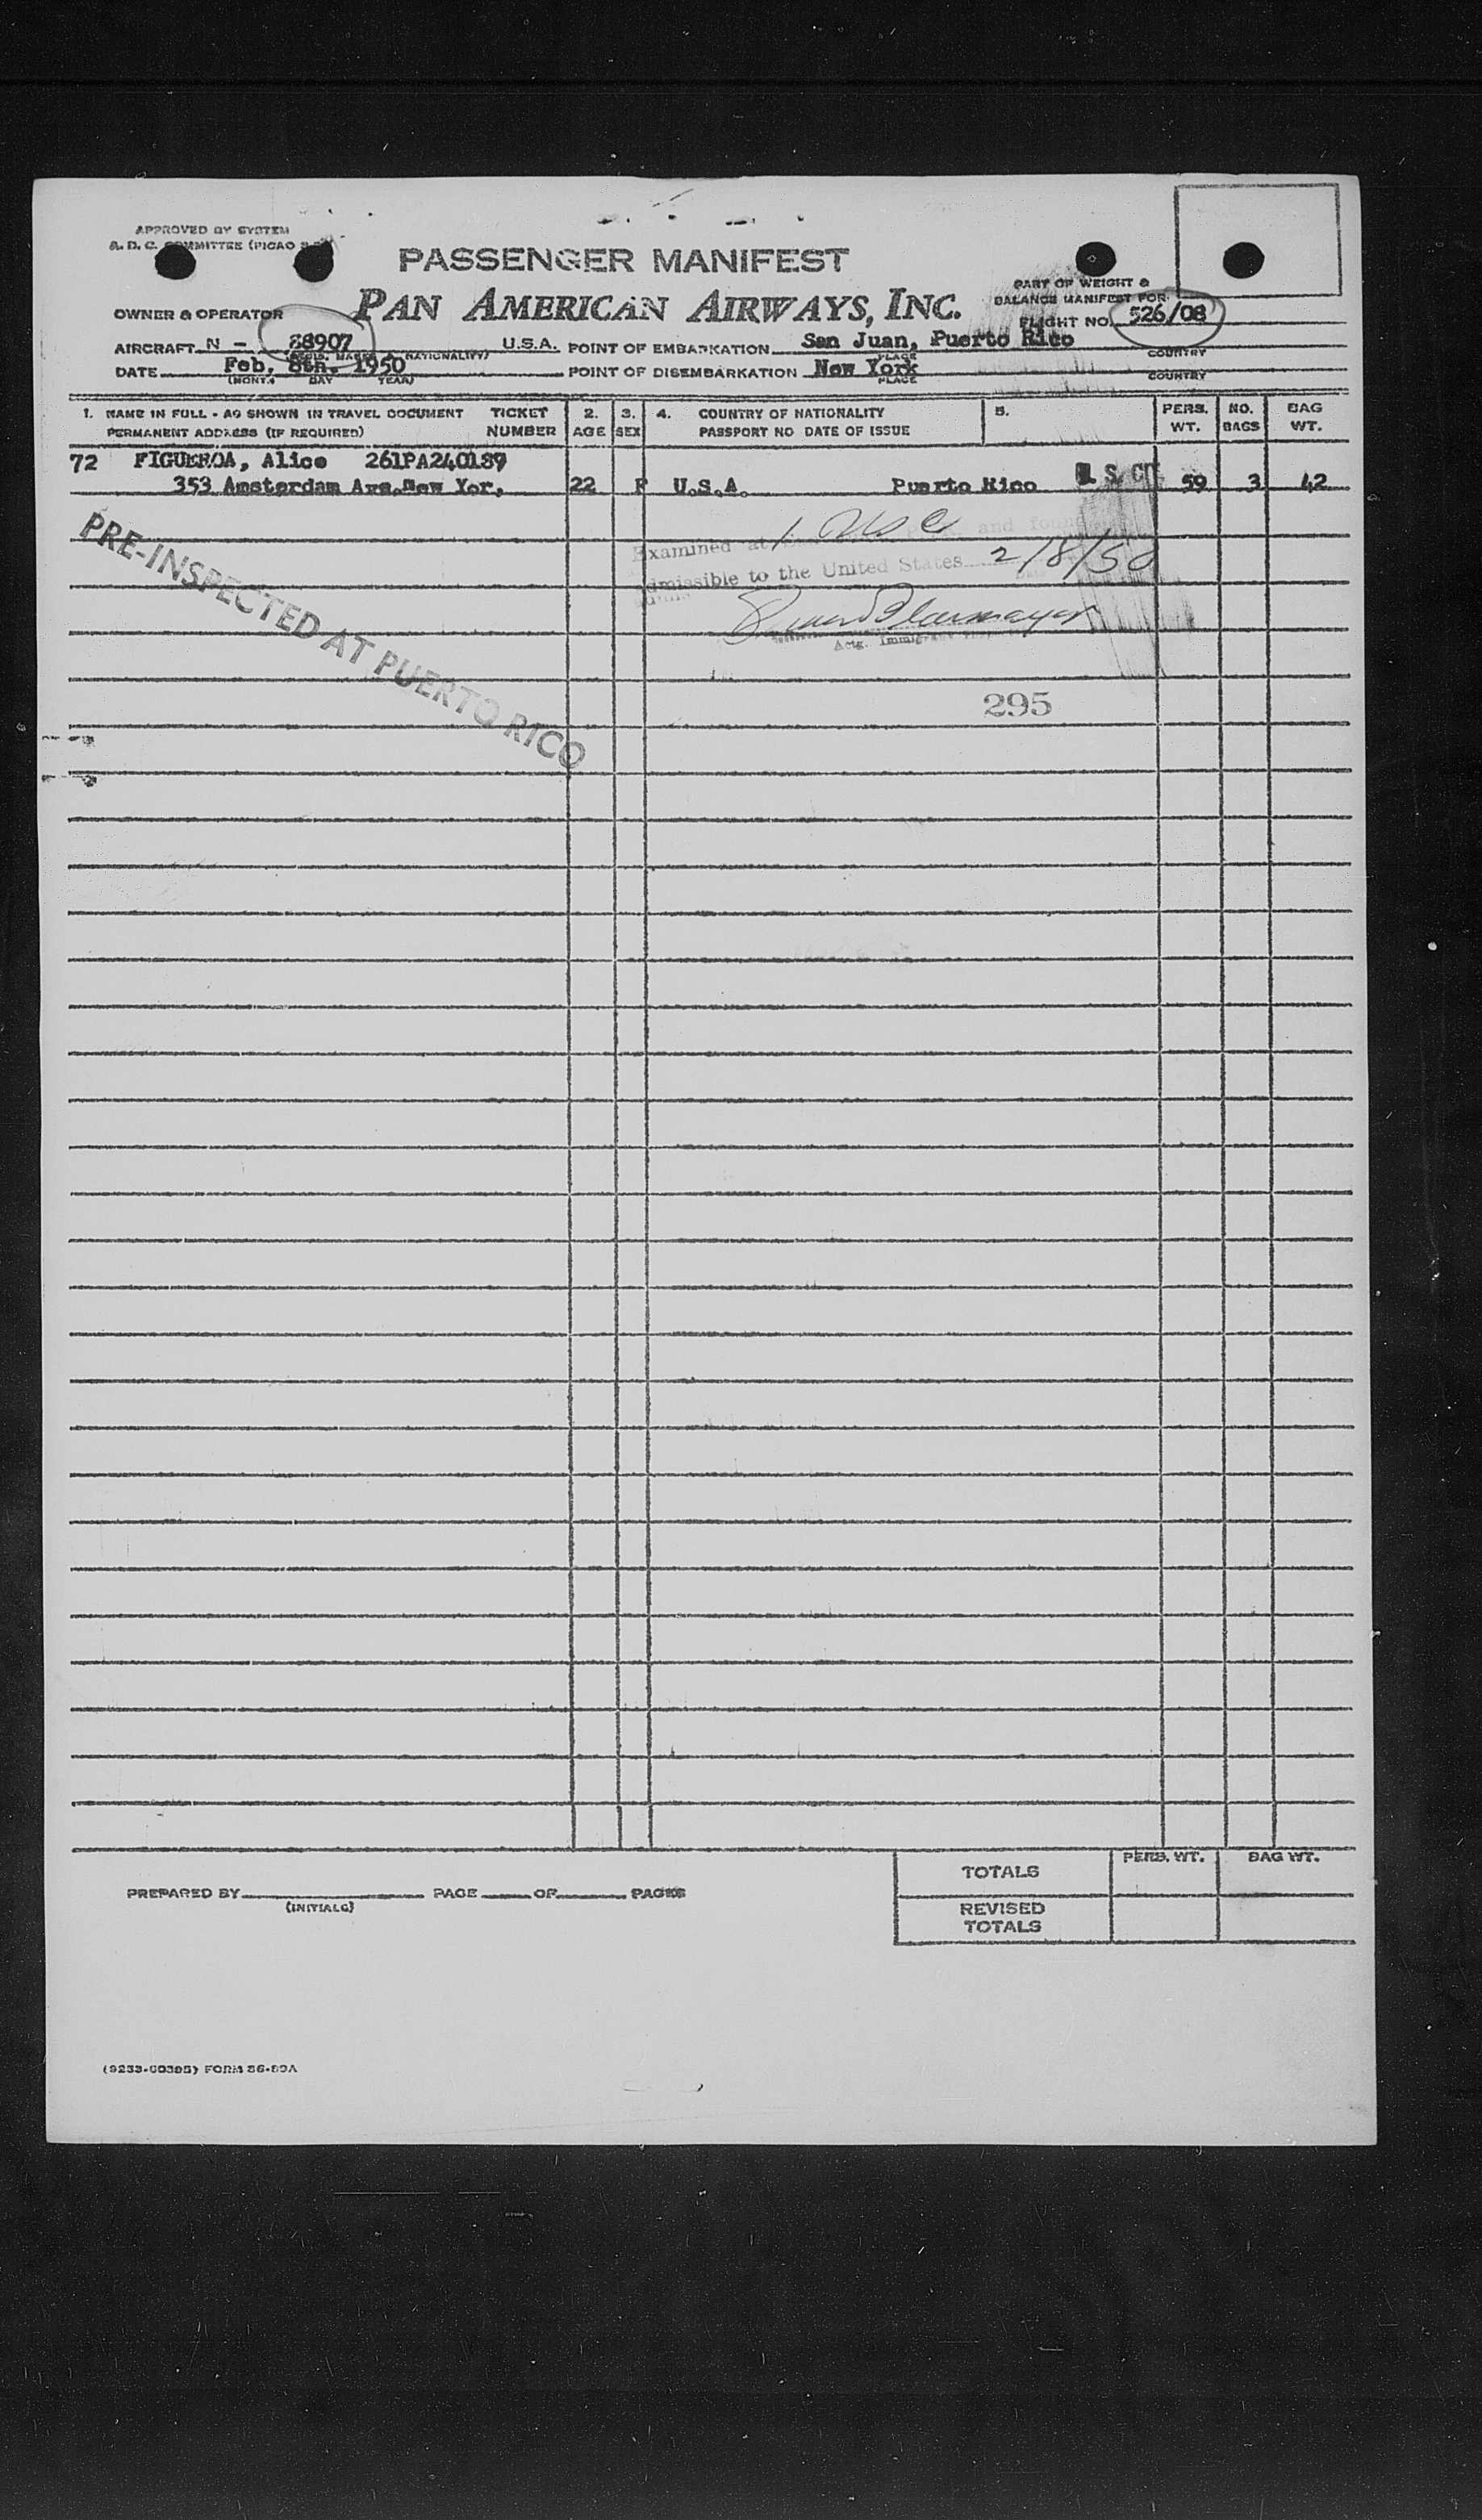 APPROVED BY SYSTEM
A. D. C. COMMITTEE (PICAO
PASSENGER MANIFEST
PART OF WEIGHT &
BALANCE MANIFEST FOR
OWNER & OPERATOR PAN AMERICAN AIRWAYS, INC.
FLIGHT NO. 526/08
AIRCRAFT N - 88907 U.S.A. POINT OF EMBARKATION San Juan, Puerto Rico
PLACE COUNTRY
DATE Feb, 8th, 1950 POINT OF DISEMBARKATION New York
(MONTH DAY YEAR) PLACE COUNTRY
1. NAME IN FULL - AS SHOWN IN TRAVEL DOCUMENT TICKET 2. 3. 4. COUNTRY OF NATIONALITY 5. PERS. NO. BAG
PERMANENT ADDRESS (IF REQUIRED) NUMBER AGE SEX PASSPORT NO DATE OF ISSUE WT. BAGS WT.
72 FIGUEROA, Alice 261PA240189
353 Amsterdam Ave. New Yor, 22 F U.S.A. Puerto Rico U.S. CIT 59 3 42
1 USC
Examined at and found
admissible to the United States 2/8/50
Actg. Immigrant
PRE-INSPECTED AT PUERTO RICO
295
TOTALS PERS. WT. BAG WT.
PREPARED BY PAGE OF PAGES
(INITIALS)
REVISED
TOTALS
FORM